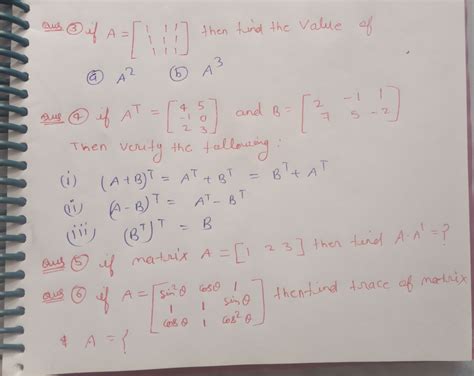 Ques ③ if A = [1 1 1
1 1 1
1 1 1] then find the value of
ⓐ A² ⓑ A³
Ques ④ if Aᵀ = [4 5
-1 0
2 3] and B = [2 -1 1
7 5 -2]
Then verify the following:
(i) (A+B)ᵀ = Aᵀ + Bᵀ = Bᵀ + Aᵀ
(ii) (A-B)ᵀ = Aᵀ - Bᵀ
(iii) (Bᵀ)ᵀ = B
Ques ⑤ if matrix A = [1 2 3] then find A·A' = ?
Ques ⑥ if A = [sin²θ cosθ 1
1 1 sinθ
cosθ 1 cos²θ] then find trace of matrix
A = {